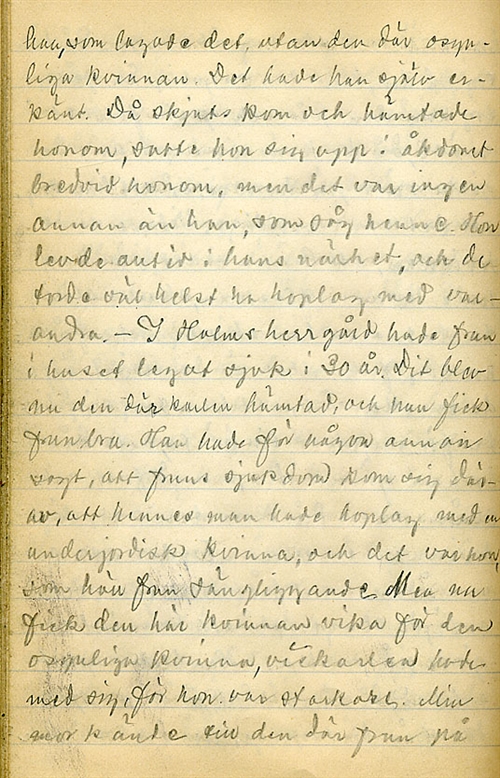 han, som lagade det, utan den där osyn-
liga kvinnan. Det hade han själv er-
känt. Då skjuts kom och hämtade
honom, satte hon sig upp i åkdonet
bredvid honom, men det var ingen
annan än han, som såg henne. Hon
levde alltid i hans närhet, och de
torde väl helst ha hoplag med var-
andra. – I Holms herrgård hade frun
i huset legat sjuk i 30 år. Dit blev
nu den där karlen hämtad, och han fick
frun bra. Han hade för någon annan
sagt, att fruns sjukdom kom sig där-
av, att hennes man hade hoplag med en
underjordisk kvinna, och det var hon,
som höll frun sängliggande. Men nu
fick den här kvinnan vika för den
osynliga kvinna, karlen hade
med sig, för hon var starkare. Min
mor kände till den där frun på